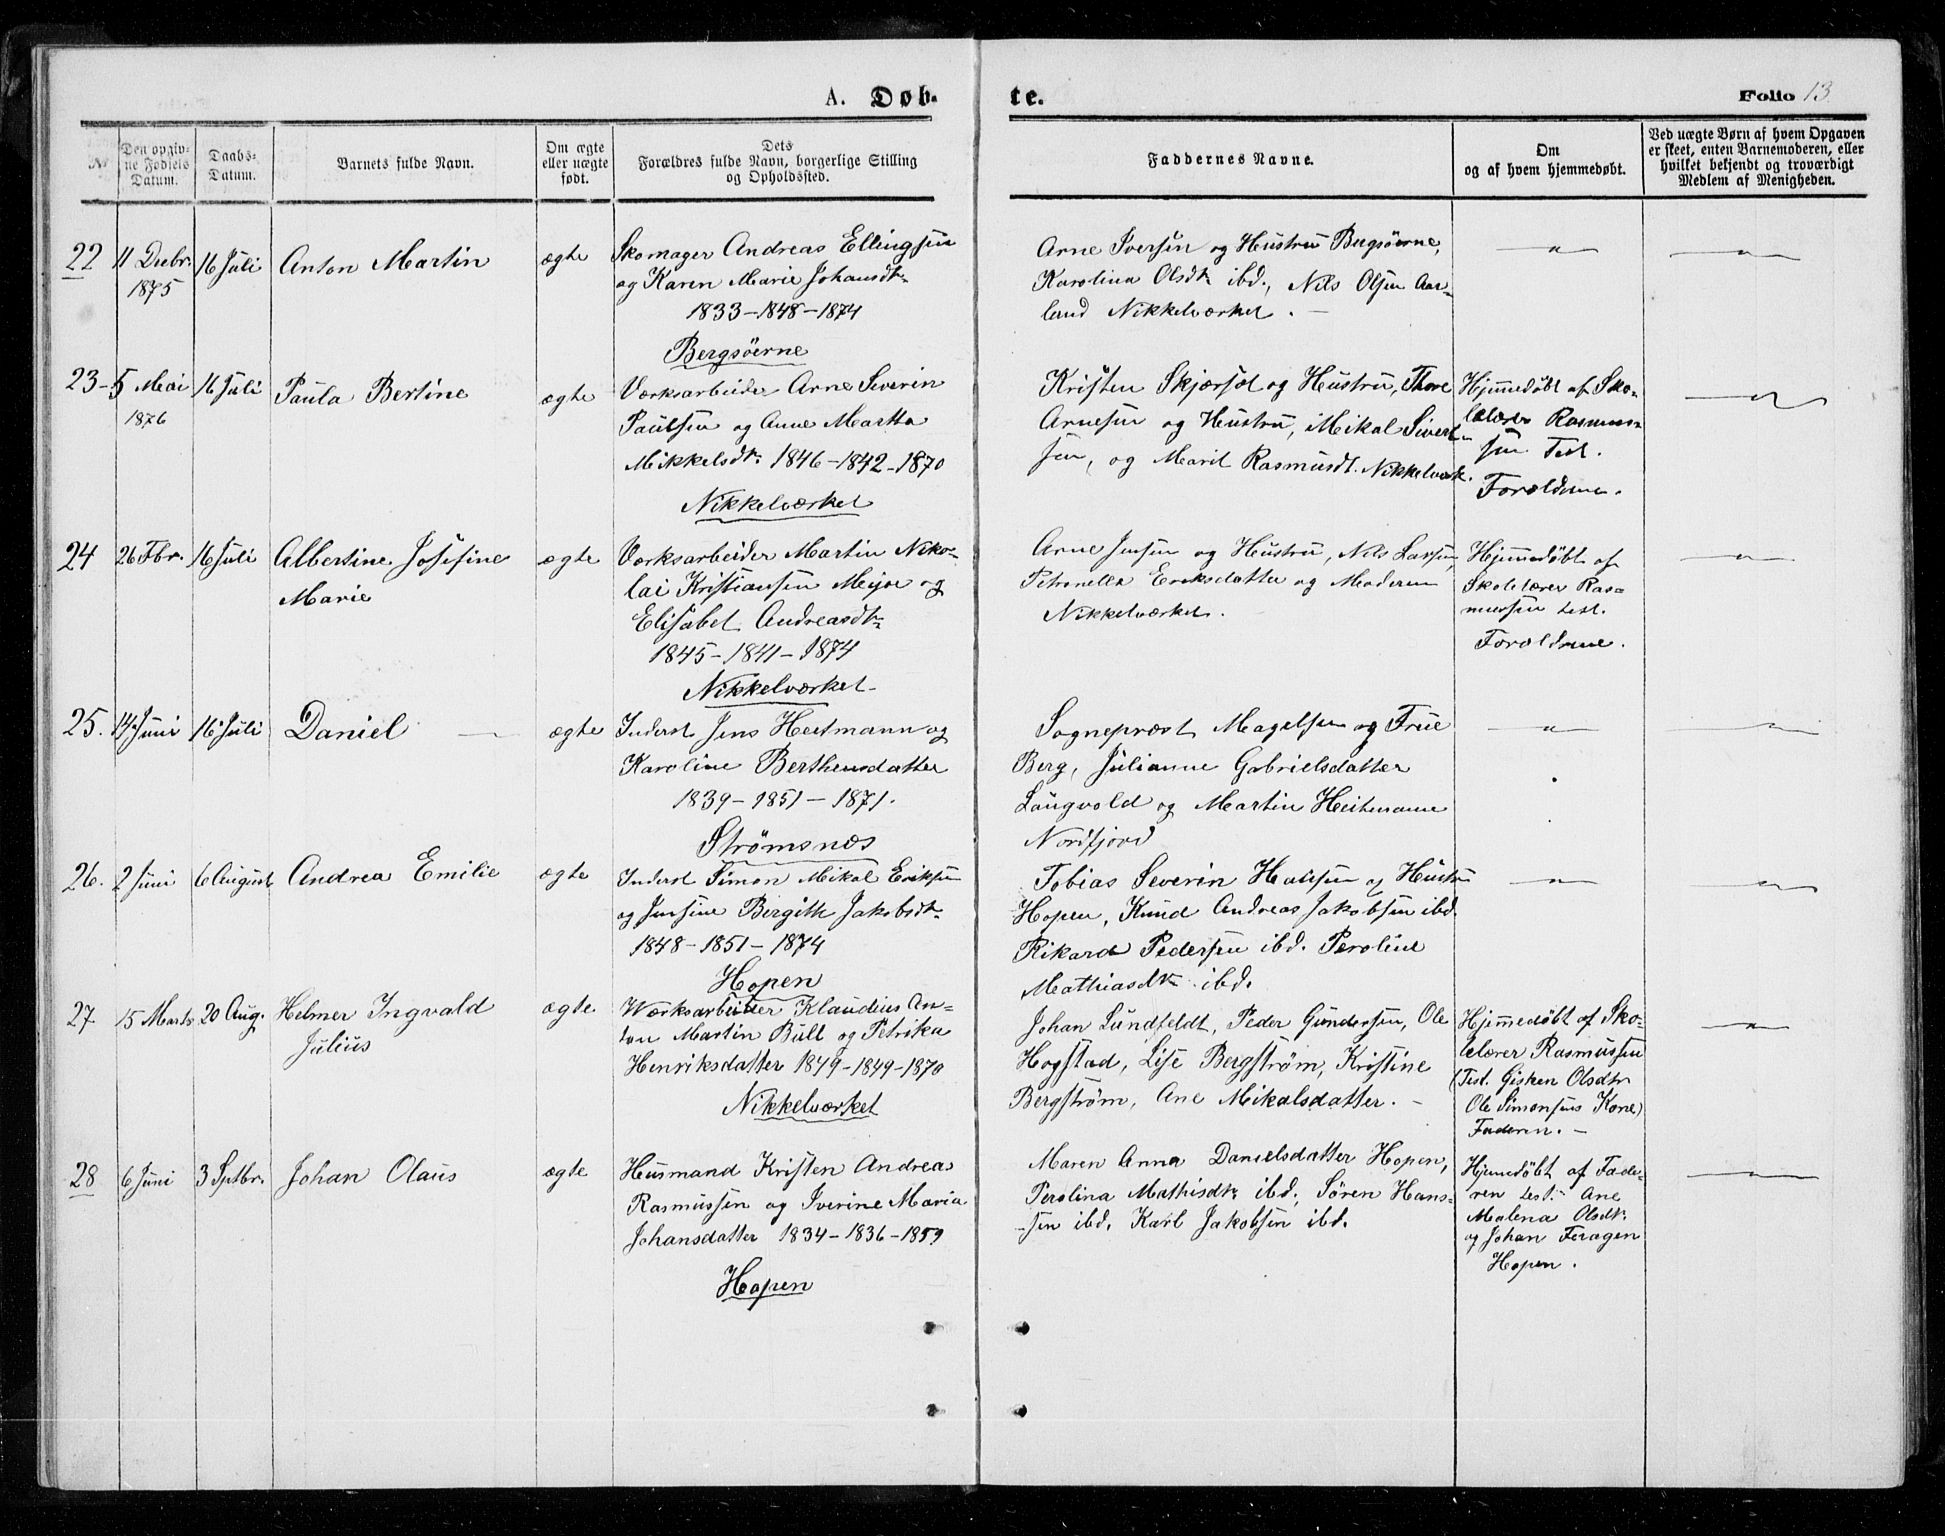 A. Døb- te. Folio 13
№ Den opgivne Fødsels Datum. Daabs-Datum. Barnets fulde Navn. Om ægte eller uægte født. Dets Forældres fulde Navn, borgerlige Stilling og Opholdssted. Faddernes Navne. Om og af hvem hjemmedøbt. Ved uægte Børn af hvem Opgaven er skeet, enten Barnemoderen, eller hvilket bekjendt og troværdigt Medlem af Menigheden.
22 11 Decbr. 1875 16 Juli Anton Martin ægte
Skomager Andreas Ellingsen
og Karen Marie Johansdtr
1833 - 1848 - 1874
Bergsöerne
Arne Iversen og Hustru Bergsöerne,
Karolina Olsdtr ibd., Nils Olsen Aar-
land Nikkelværket. -
23 - 5 Mai 1876 16 Juli Paula Bertine ægte
Værksarbeider Arne Severin
Paulsen og Anne Martha
Mikkelsdtr. 1846 - 1842 - 1870
Nikkelværket
Kristen Skjærsæt og Hustru, Thore
Arnesen og Hustru, Mikal Sivert-
sen, og Marit Rasmusdt. Nikkelværk.
Hjemmedøbt af Sko-
lelærer Rasmus-
sen Test.
Forældrene.
24 26 Fbr. 16 Juli Albertine Josefine
Marie ægte
Værksarbeider Martin Niko-
lai Kristiansen Meijer og
Elisabet Andreasdtr
1845 - 1841 - 1874
Nikkelværket -
Arne Jensen og Hustru, Nils Larsen,
Petronella Eriksdatter og Moderen
Nikkelværket.
Hjemmedøbt af
Skolelærer Ras-
mussen test.
Forældrene.
25. 14 Juni 16 Juli Daniel - ægte
Inderst Jens Heitmann og
Karoline Bertheusdatter
1839 - 1851 - 1871.
Strömsnæs
Sognepræst Magelsen og Frue
Berg, Julianne Gabrielsdatter
Langvold og Martin Heitmann
Nordfjord
26. 2 Juni 6 August Andrea Emilie ægte
Inderst Simon Mikal Eriksen
og Jensine Bergith Jakobsdt.
1848 - 1851 - 1874
Hopen
Tobias Severin Hansen og Hustru
Hopen, Knud Andreas Jakobsen ibd.
Rikard Pedersen ibd. Peroline
Mathiasdtr ibd.
27 15 Marts 20 Aug. Helmer Ingvald
Julius ægte
Værksarbeider Klaudius An-
ton Martin Bull og Petrika
Henriksdatter 1849 - 1849 - 1870
Nikkelværket
Johan Lundfeldt, Peder Gundersen, Ole
Hogstad, Lise Bergström, Kristine
Bergström, Ane Mikalsdatter. -
Hjemmedøbt af Sko-
lelærer Rasmussen
(Test. Gisken Olsdtr
Ole Simonsens Kone)
Faderen. -
28 6 Juni 3 Sptbr. Johan Olaus ægte
Husmand Kristen Andreas
Rasmussen og Iverine Maria
Johansdatter 1834 - 1836 - 1859
Hopen
Maren Anna Danielsdatter Hopen,
Perolina Mathisdtr ibd. Sören Hans-
sen ibd. Karl Jakobsen ibd.
Hjemmedøbt af Fade-
ren test. Ane
Malena Olsdtr
og Johan Feragen
Hopen.